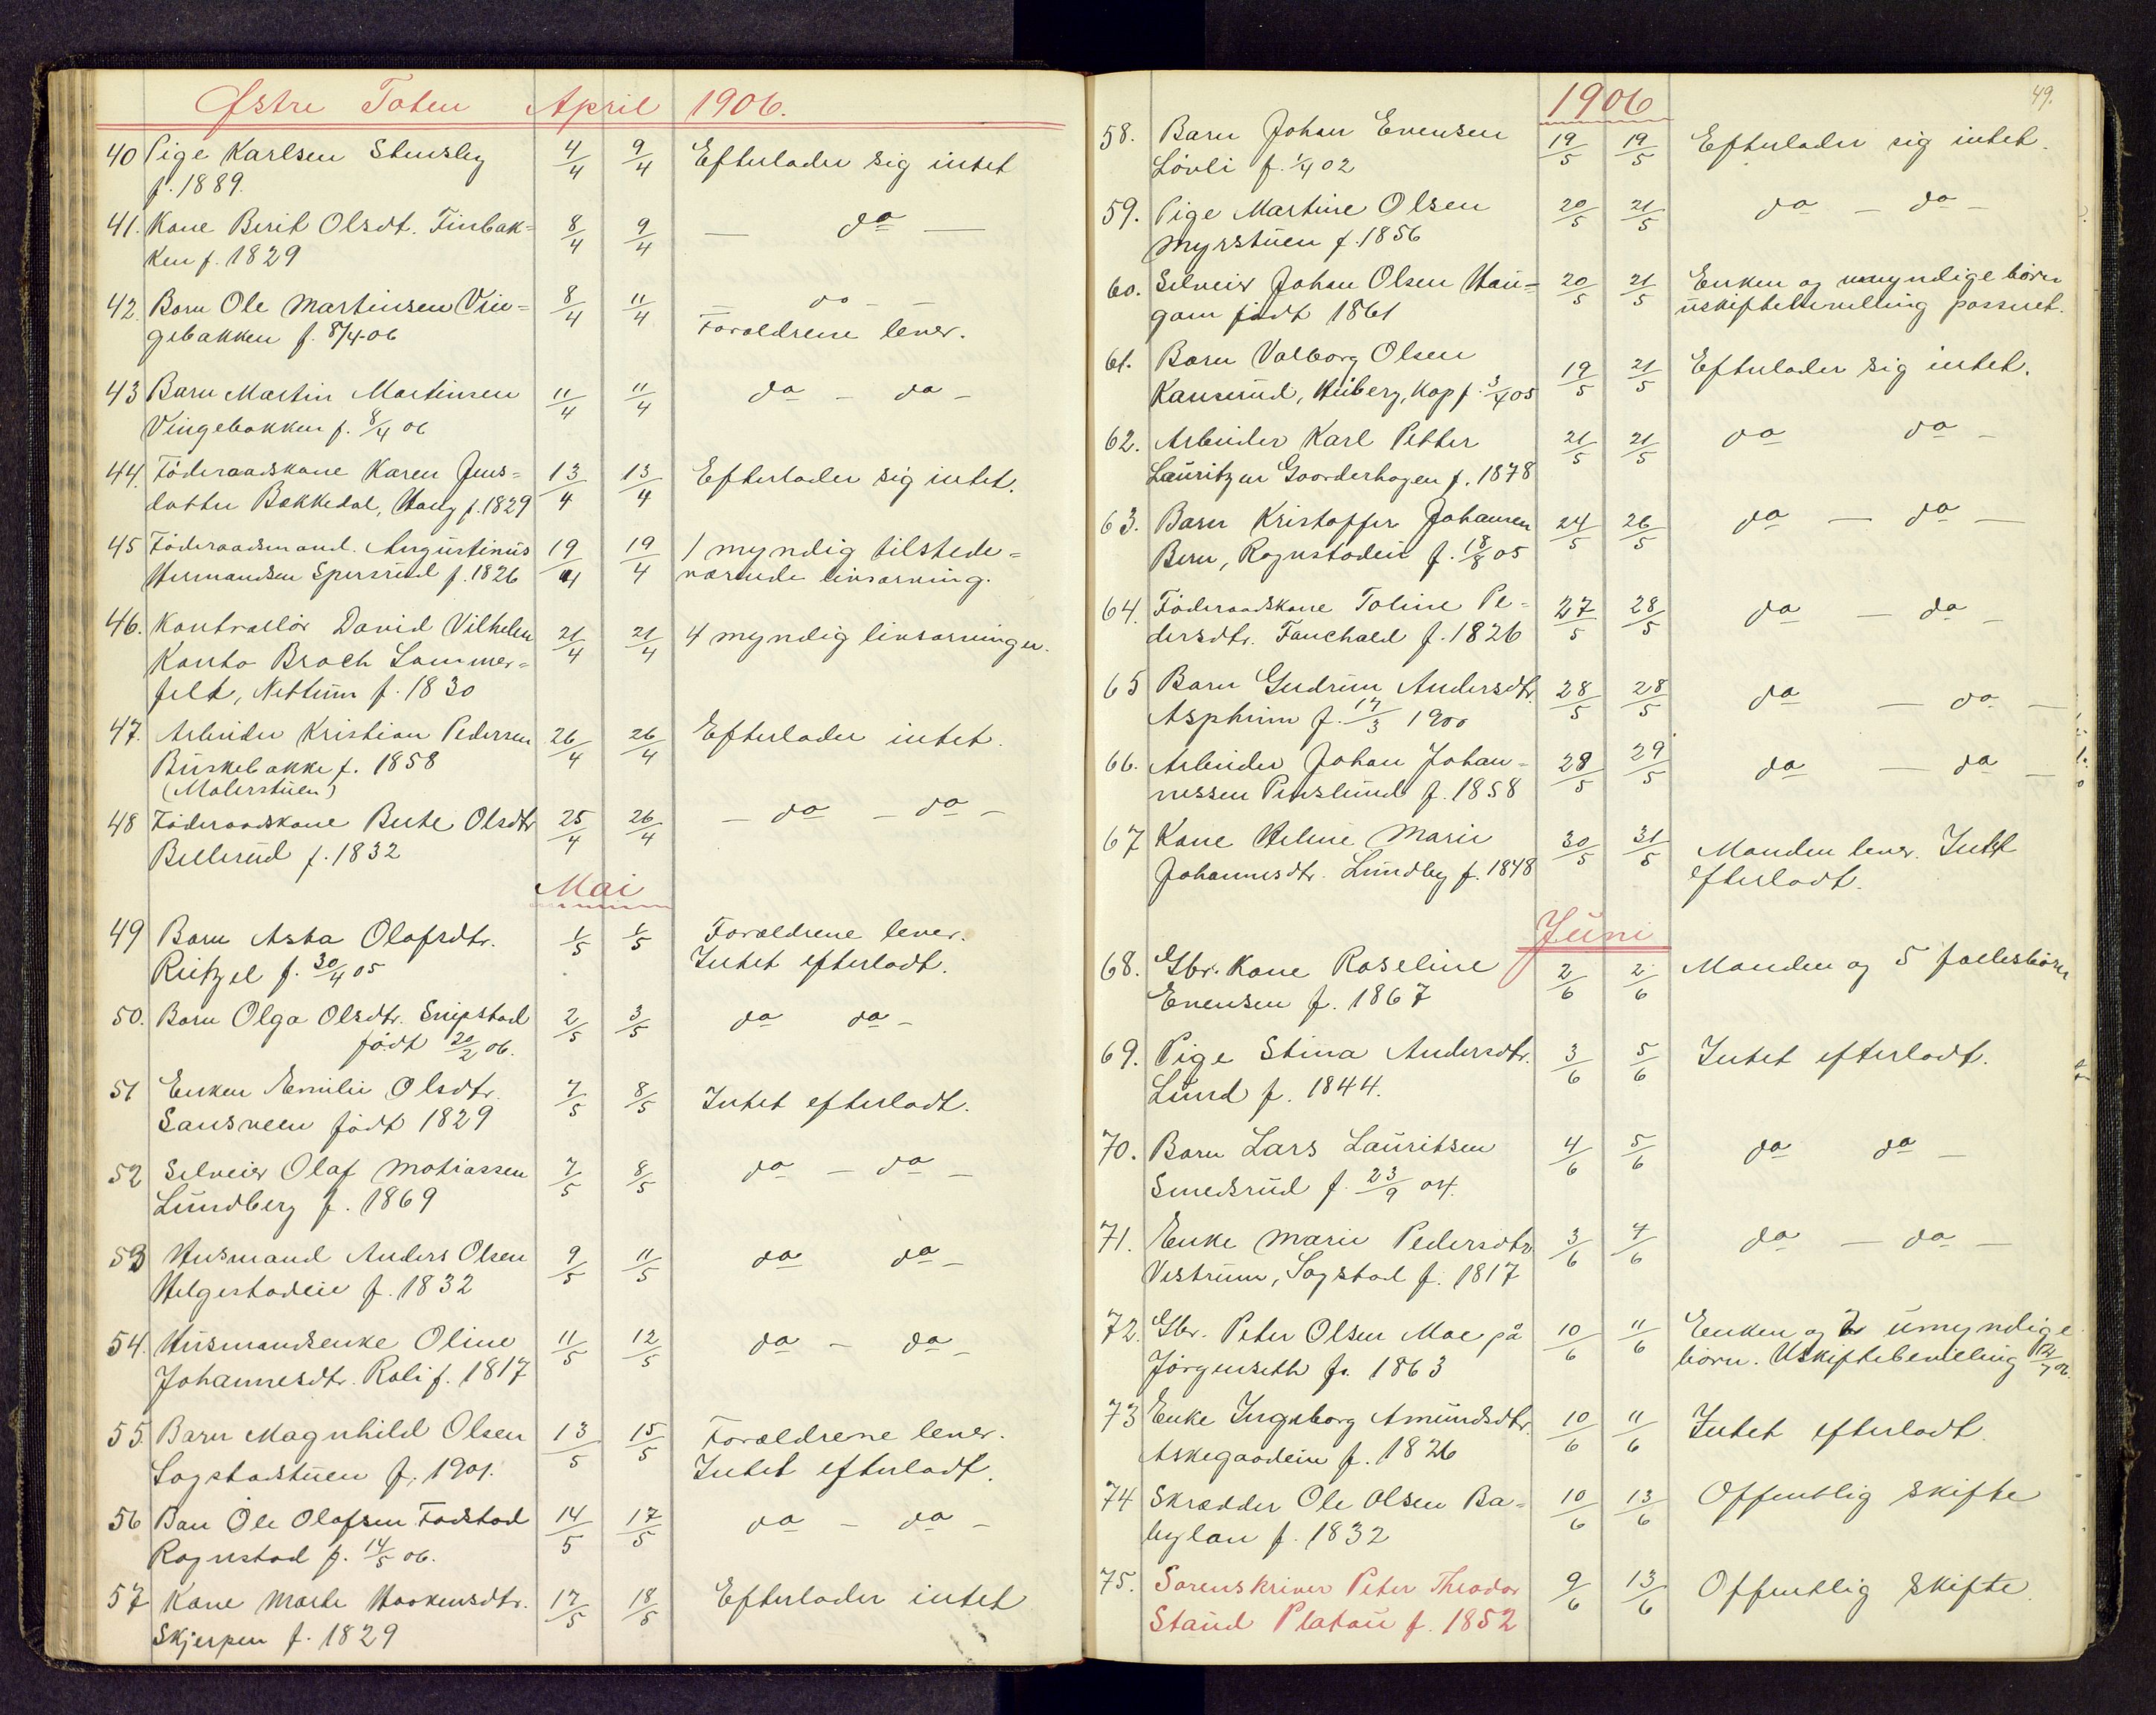 Østre Toten April 1906.
40 Pige Karlsen Stensby 4/4 9/4 Efterlader sig intet
f. 1889.
41. Kone Berit Olsdt. Finbak= 8/4 9/4 — do —
ken f. 1829
42. Barn Ole Martinsen Vin= 8/4 11/4 — do —
gebakken f. 8/4-06 Forældrene lever.
43 Barn Martin Martinsen 11/4 11/4 do — do —
Vingebakken f. 8/4 06
44. Föderaadskone Karen Jens= 13/4 13/4 Efterlader sig intet.
datter Bakkedal, Haug f. 1829
45 Föderaadsmand. Augustinus 19/4 19/4 1 myndig tilstede=
Hermandsen Spersrud f. 1826 værende livsarving.
46. Kontrollör David Vilhelm 21/4 21/4 4 myndig livsarvinger.
Konto Broch Sommer=
felt, Nettum f. 1830
47. Arbeider Kristian Pedersen 26/4 26/4 Efterlader intet.
Buskebakke f. 1858
(Malerstuen)
48 Föderaadskone Berte Olsdtr 25/4 26/4 — do — do —
Billerud f. 1832
Mai
49 Barn Asta Olafsdtr. 1/5 1/5 Forældrene lever.
Reitzel f. 30/4 05 Intet efterladt.
50. Barn Olga Olsdtr. Snipstad 2/5 3/5 do do —
född 20/2 06.
51 Enken Emilie Olsdtr. 7/5 8/5 Intet efterladt.
Sansveen född 1829
52 Selveier Olaf Matiassen 7/5 8/5 do — do —
Lundberg f. 1869
53 Husmand Anders Olsen 9/5 11/5 do do —
Helgestadeie f. 1832
54. Husmandsenke Oline 11/5 12/5 do — do —
Johannesdtr. Roli f. 1817
55. Barn Magnhild Olsen 13/5 15/5 Forældrene lever.
Sogstadstuen f. 1901. Intet efterladt.
56 Barn Ole Olafsen Fodstad 14/5 17/5 do — do —
Rognstad f. 14/5 06.
57 Kone Marte Haakensdtr. 17/5 18/5 Efterlader intet
Skjerpen f. 1829
1906 49.
58. Barn Johan Evensen 19/5 19/5 Efterlader sig intet.
Lövli f. 1/4 02
59. Pige Martine Olsen 20/5 21/5 do — do —
Myrstuen f. 1856
60. Selveier Johan Olsen Hau= 20/5 21/5 Enken og umyndige börn
gom född 1861 uskiftebevilling passeret.
61. Barn Valborg Olsen 19/5 21/5 Efterlader sig intet.
Kanserud, Huberg, Kap f. 3/4 05
62. Arbeider Karl Petter 21/5 21/5 do do —
Lauritzen Gaarderhagen f. 1878
63. Barn Kristoffer Johansen 24/5 26/5 do — do —
Bern, Rognstadeie f. 18/8 05
64. Föderaadskone Toline Pe= 27/5 28/5 do — do —
dersdtr. Fauchald f. 1826
65 Barn Gudrun Andersdtr. 28/5 28/5 do — do —
Aspheim f. 17/3 1900
66. Arbeider Johan Johan= 28/5 29/5 do — do —
nessen Penslund f. 1858
67 Kone Helene Marie 30/5 31/5 Manden lever. Intet
Johannesdtr. Lundby f. 1848 efterladt.
Juni
68. Gbr. Kone Roseline 2/6 2/6 Manden og 5 fællesbörn
Evensen f. 1867
69. Pige Stina Andersdtr. 3/6 5/6 Intet efterladt.
Lund f. 1844.
70. Barn Lars Lauritsen 4/6 5/6 do do —
Smedsrud f. 23/9 04.
71. Enke Marie Pedersdtr 3/6 4/6 do — do —
Vestrum, Sogstad f. 1817
72. Gbr. Peter Olsen Moe på 10/6 11/6 Enken og 2 umyndige
Jörgenseth f. 1863 börn. Uskiftebevilling
73 Enke Ingeborg Amundsdtr. 10/6 11/6 Intet efterladt.
Askegaadeie f. 1826
74 Skrædder Ole Olsen Ba= 10/6 13/6 Offentlig skifte
bylon f. 1832
75. Sorenskriver Peter Theodor 9/6 13/6 Offentlig skifte.
Staud Platou f. 1852